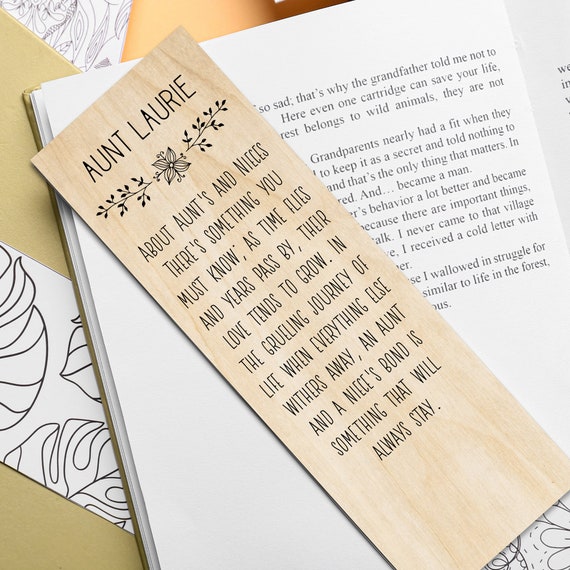 AUNT LAURIE
ABOUT AUNT'S AND NIECES
THERE'S SOMETHING YOU
MUST KNOW, AS TIME FLIES
AND YEARS PASS BY, THEIR
LOVE TENDS TO GROW. IN
THE GRUELING JOURNEY OF
LIFE WHEN EVERYTHING ELSE
WITHERS AWAY, AN AUNT
AND A NIECE'S BOND IS
SOMETHING THAT WILL
ALWAYS STAY.
so sad; that's why the grandfather told me not to
Here even one cartridge can save your life,
rest belongs to wild animals, they are not
Grandparents nearly had a fit when they
to keep it as a secret and told nothing to
and that's the only thing that matters. In
red. And... became a man.
r's behavior a lot better and became
because there are important things,
alk. I never came to that village
e, I received a cold letter with
se I wallowed in struggle for
similar to life in the forest,
ous.
we
in